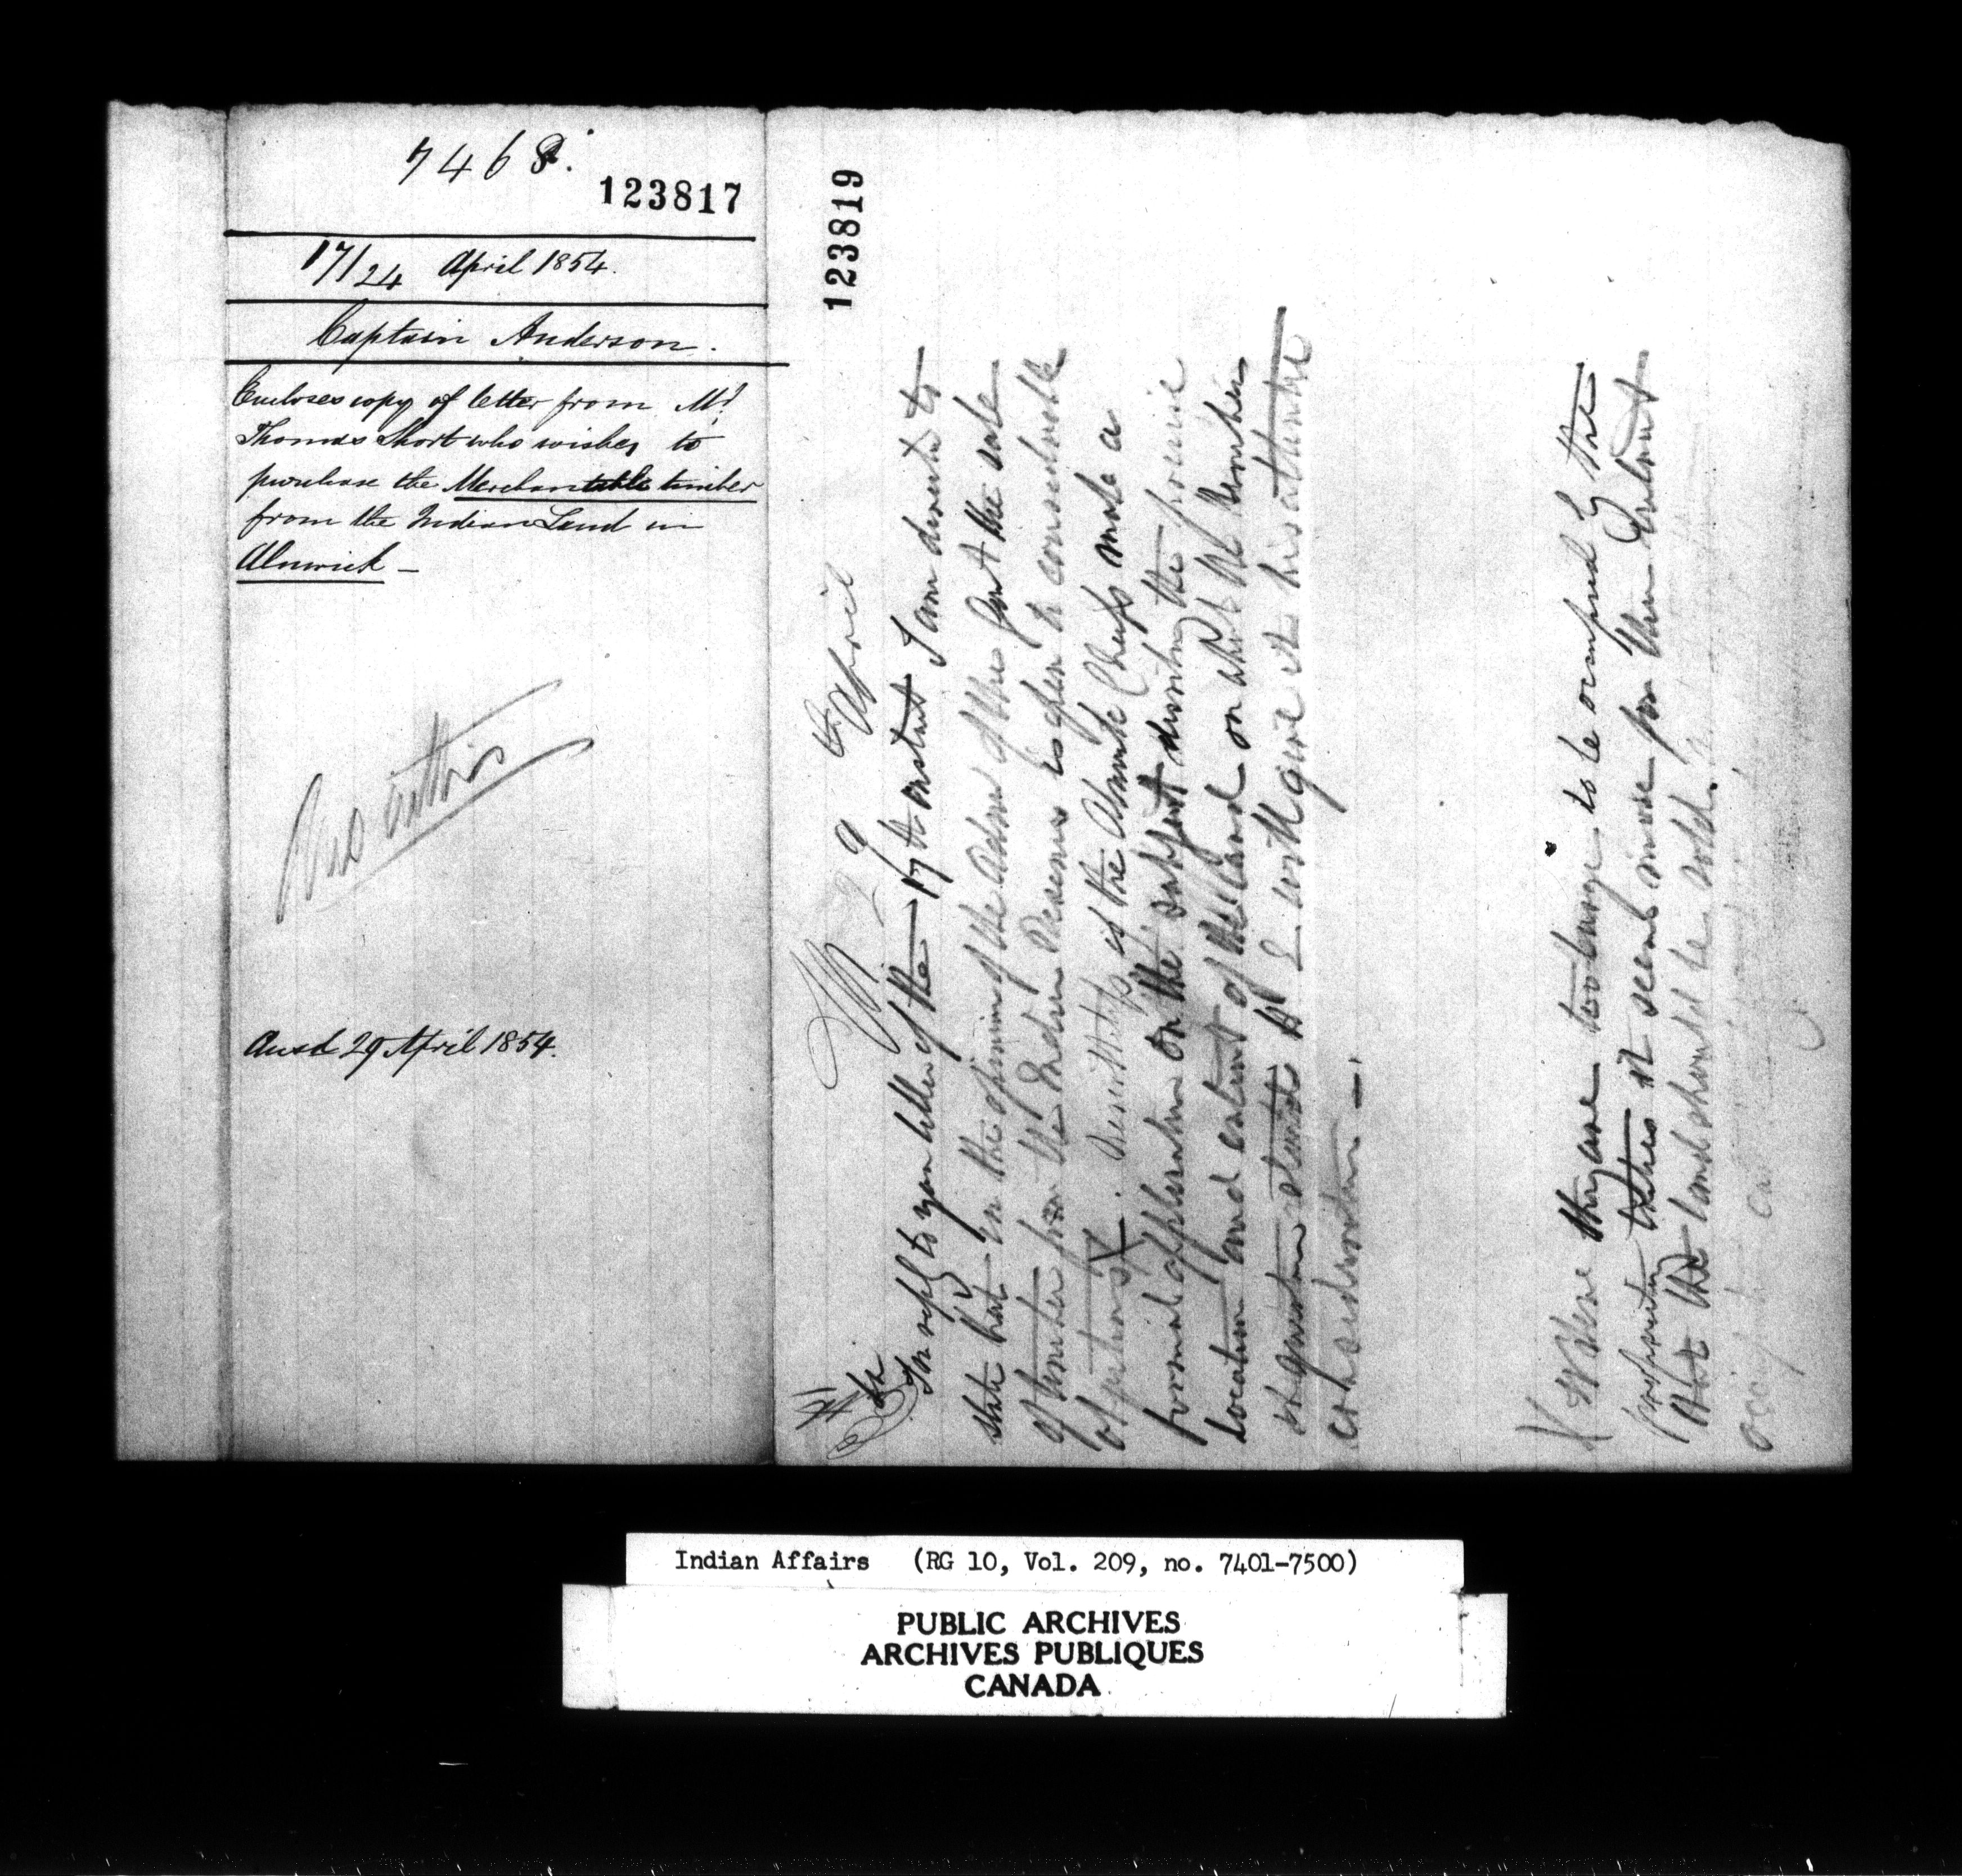 7468.
123817
17/24 April 1854.
Captain Anderson.
Encloses copy of letter from Mr.
Thomas Short who wishes to
purchase the Merchantable timber
from the Indian Land in
Alnwick —
Ansd 29 April 1854.
123819
29 April
Sir
In reply to your letter of the 17th instant I am directed to
state that in the opinion of the the sale
of timber from the Indian Reserves is open to considerable
objections X. Nevertheless if the Alnwick Chiefs make a
formal application on the subject describing the precise
location and extent of the land on which the timber
in question stands H E will give it his attentive
consideration —
X Where they are too large to be occupied by the
it seems more for their interest
that the land should be sold.
Indian Affairs (RG 10, Vol. 209, no. 7401-7500)
PUBLIC ARCHIVES
ARCHIVES PUBLIQUES
CANADA